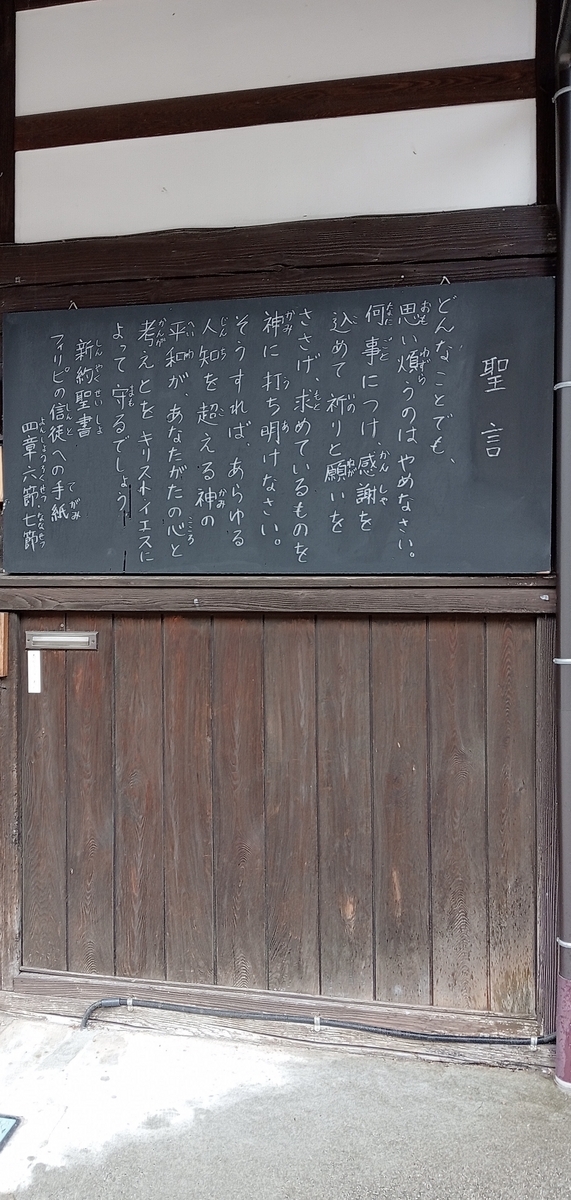 聖言
どんなことでも、
思い煩うのはやめなさい。
何事につけ、感謝を
込めて祈りと願いを
ささげ、求めているものを
神に打ち明けなさい。
そうすれば、あらゆる
人知を超える神の
平和が、あなたがたの心と
考えとをキリスト・イエスに
よって守るでしょう。
新約聖書
フィリピの信徒への手紙
四章六節、七節